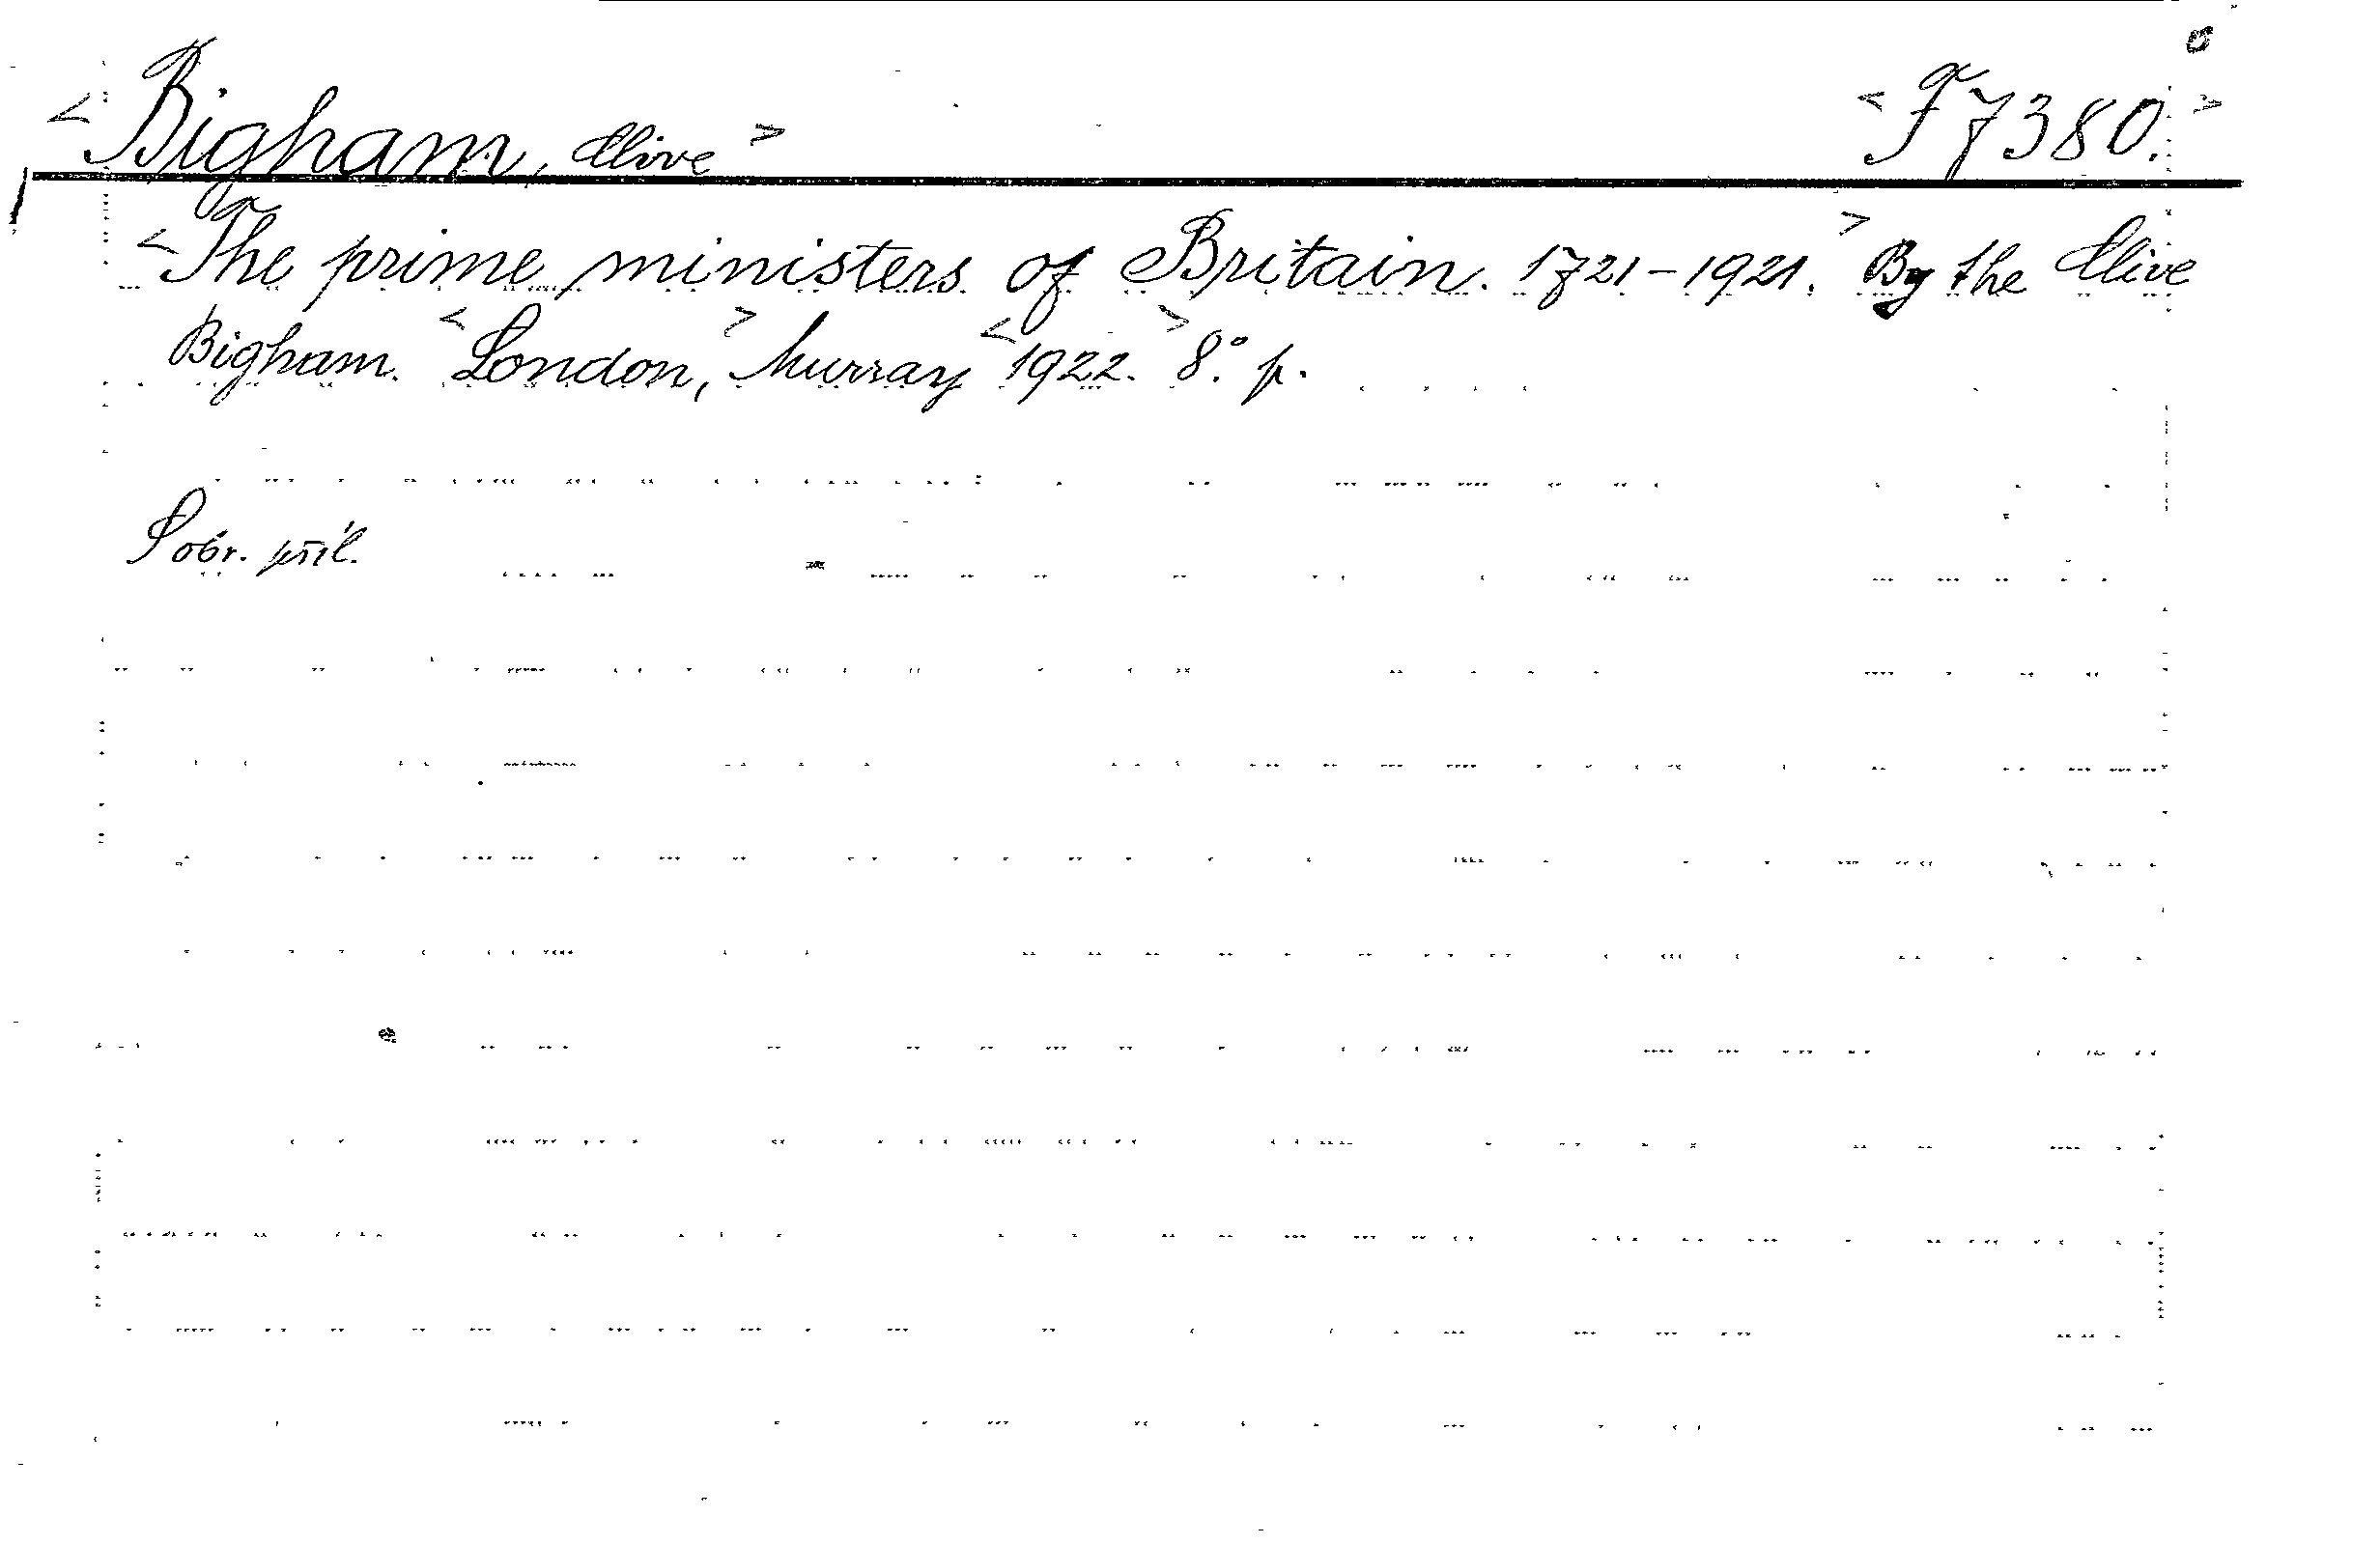 <Bigham, Clive> <F 7380.>
<The prime ministers of Britain. 1721-1921.> By the Clive
Bigham. <London,> Murray <1922.> 8.° p.
S obr. příl.